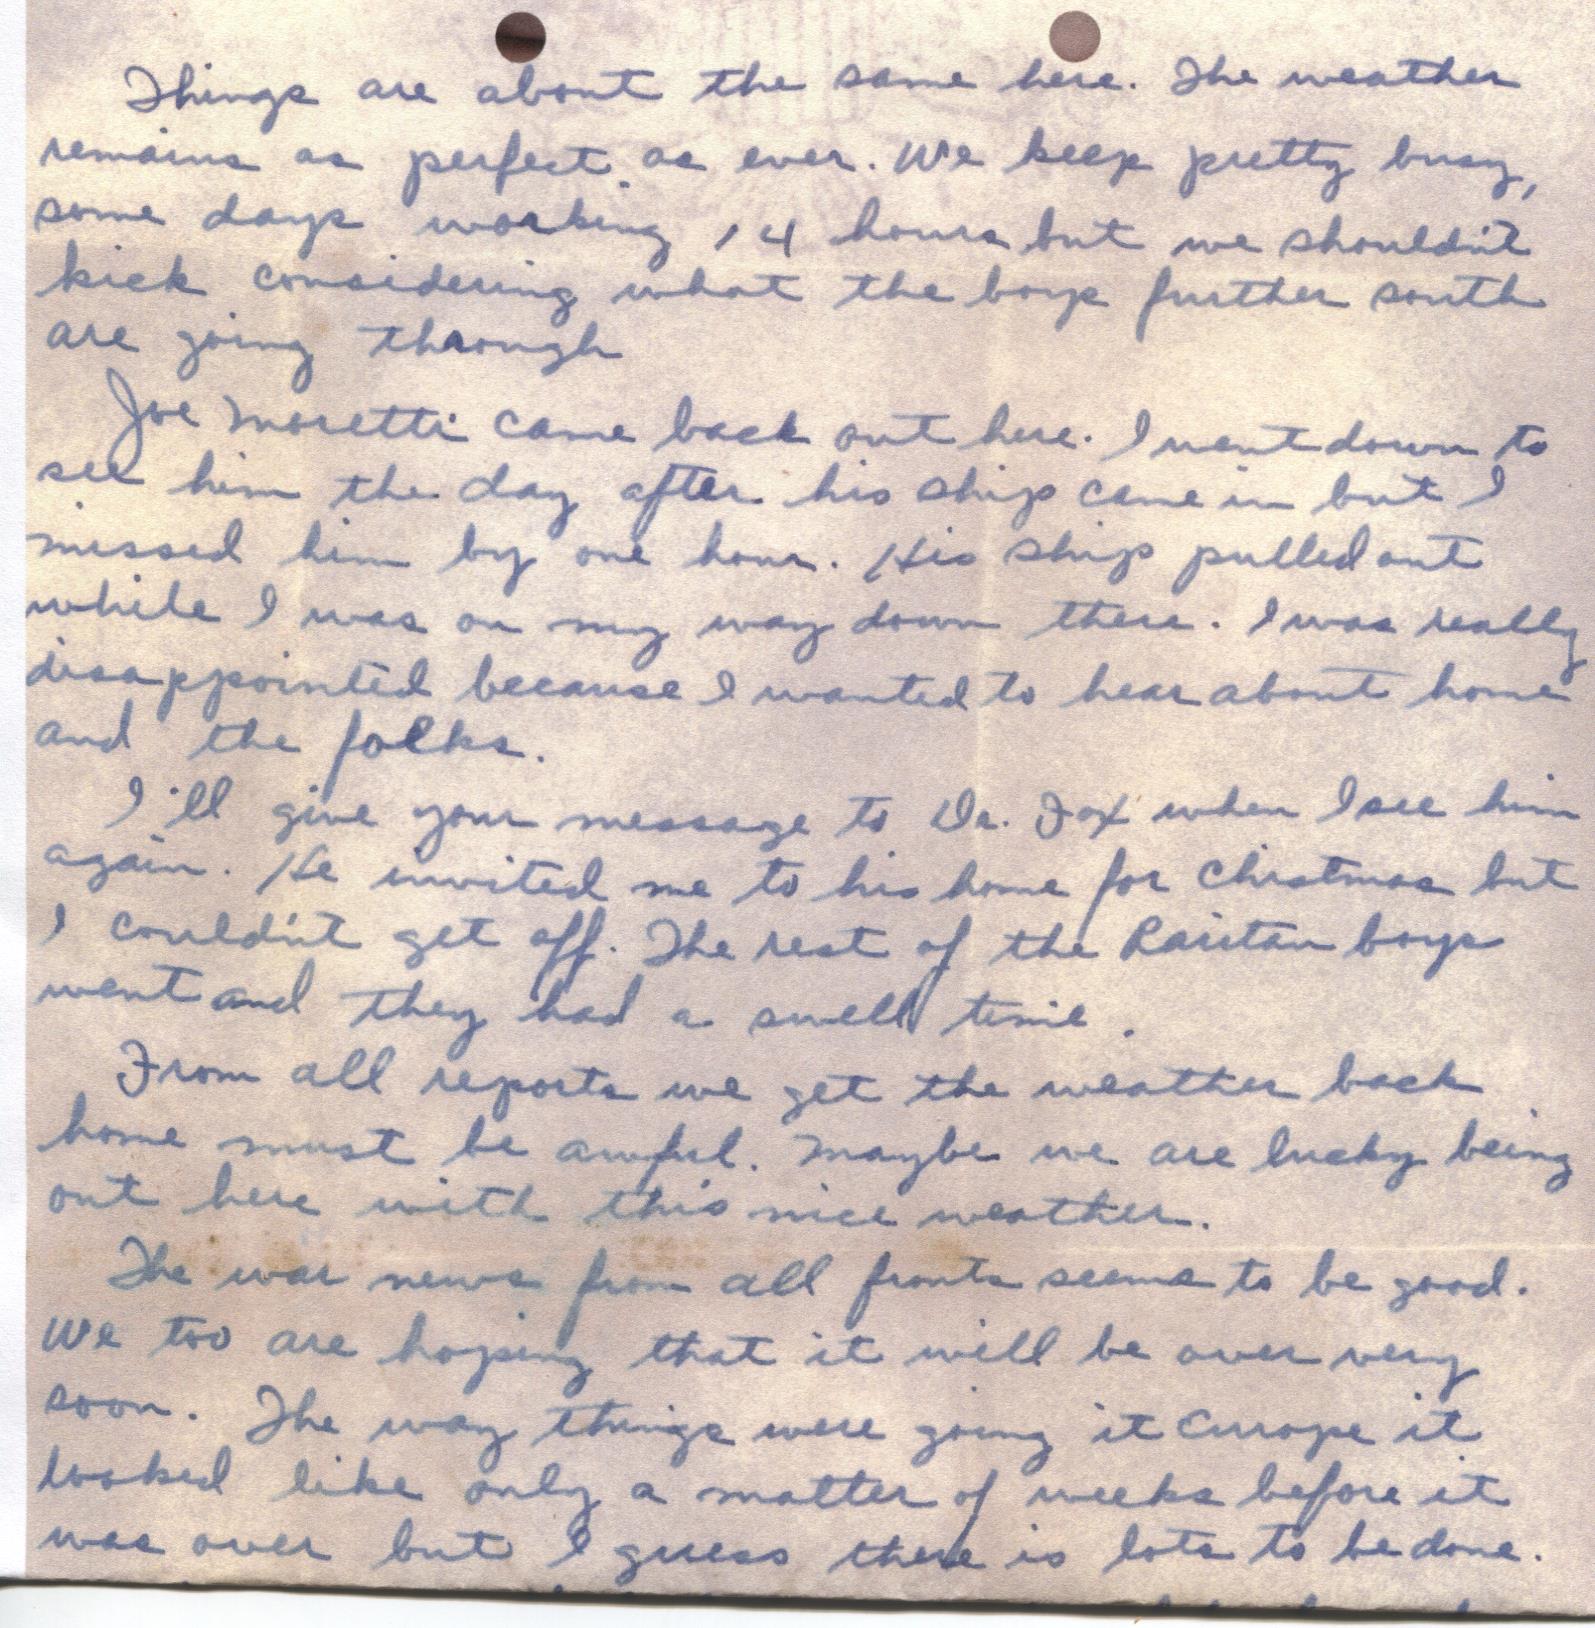 Things are about the same here. The weather
remains as perfect as ever. We keep pretty busy,
some days working 14 hours but we shouldn't
kick considering what the boys further south
are going through
Joe Moretti came back out here. I went down to
see him the day after his ship came in but I
missed him by one hour. His ship pulled out
while I was on my way down there. I was really
disappointed because I wanted to hear about home
and the folks.
I'll give your message to Dr. Fox when I see him
again. He invited me to his home for Chistmas but
I couldn't get off. The rest of the Raritan boys
went and they had a swell time.
From all reports we get the weather back
home must be awful. Maybe we are lucky being
out here with this nice weather.
The war news from all fronts seems to be good.
We too are hoping that it will be over very
soon. The way things were going it Europe it
looked like only a matter of weeks before it
was over but I guess there is lots to be done.